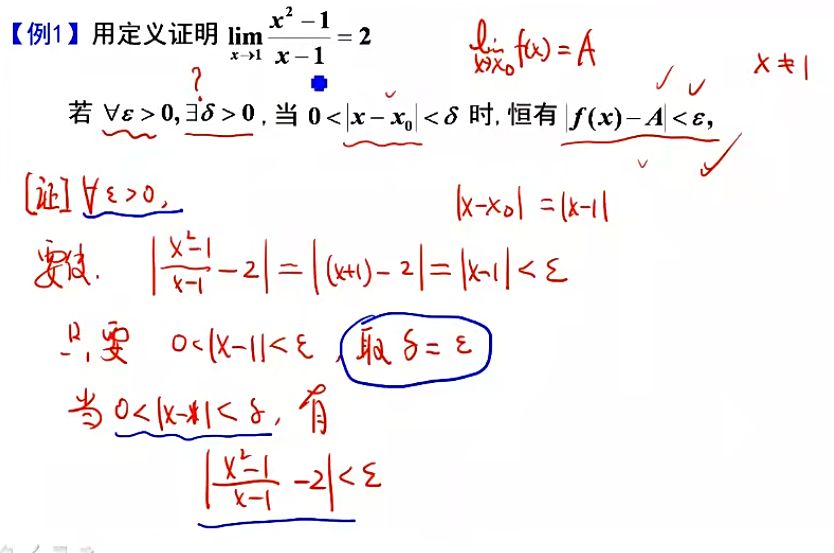 【例1】用定义证明 lim x→1 (x² − 1)/(x − 1) = 2
lim x→x₀ f(x) = A
x ≠ 1
?
若 ∀ε > 0, ∃δ > 0, 当 0 < |x − x₀| < δ 时, 恒有 |f(x) − A| < ε,
[证] ∀ε>0,
|x−x₀| = |x−1|
要使. |(x²−1)/(x−1) − 2| = |(x+1) − 2| = |x−1| < ε
只要 0<|x−1|<ε, 取 δ = ε
当 0<|x−1|<δ, 有
|(x²−1)/(x−1) − 2| < ε